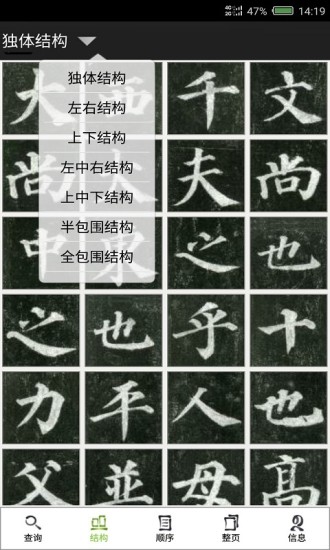 4G 2G 47% 14:19
独体结构
独体结构
左右结构
上下结构
左中右结构
上中下结构
半包围结构
全包围结构
大 西 千 文
尚 夫 尚
中 東 之 也
之 也 乎 十
力 平 人 也
父 並 母 高
查询 结构 顺序 整页 信息